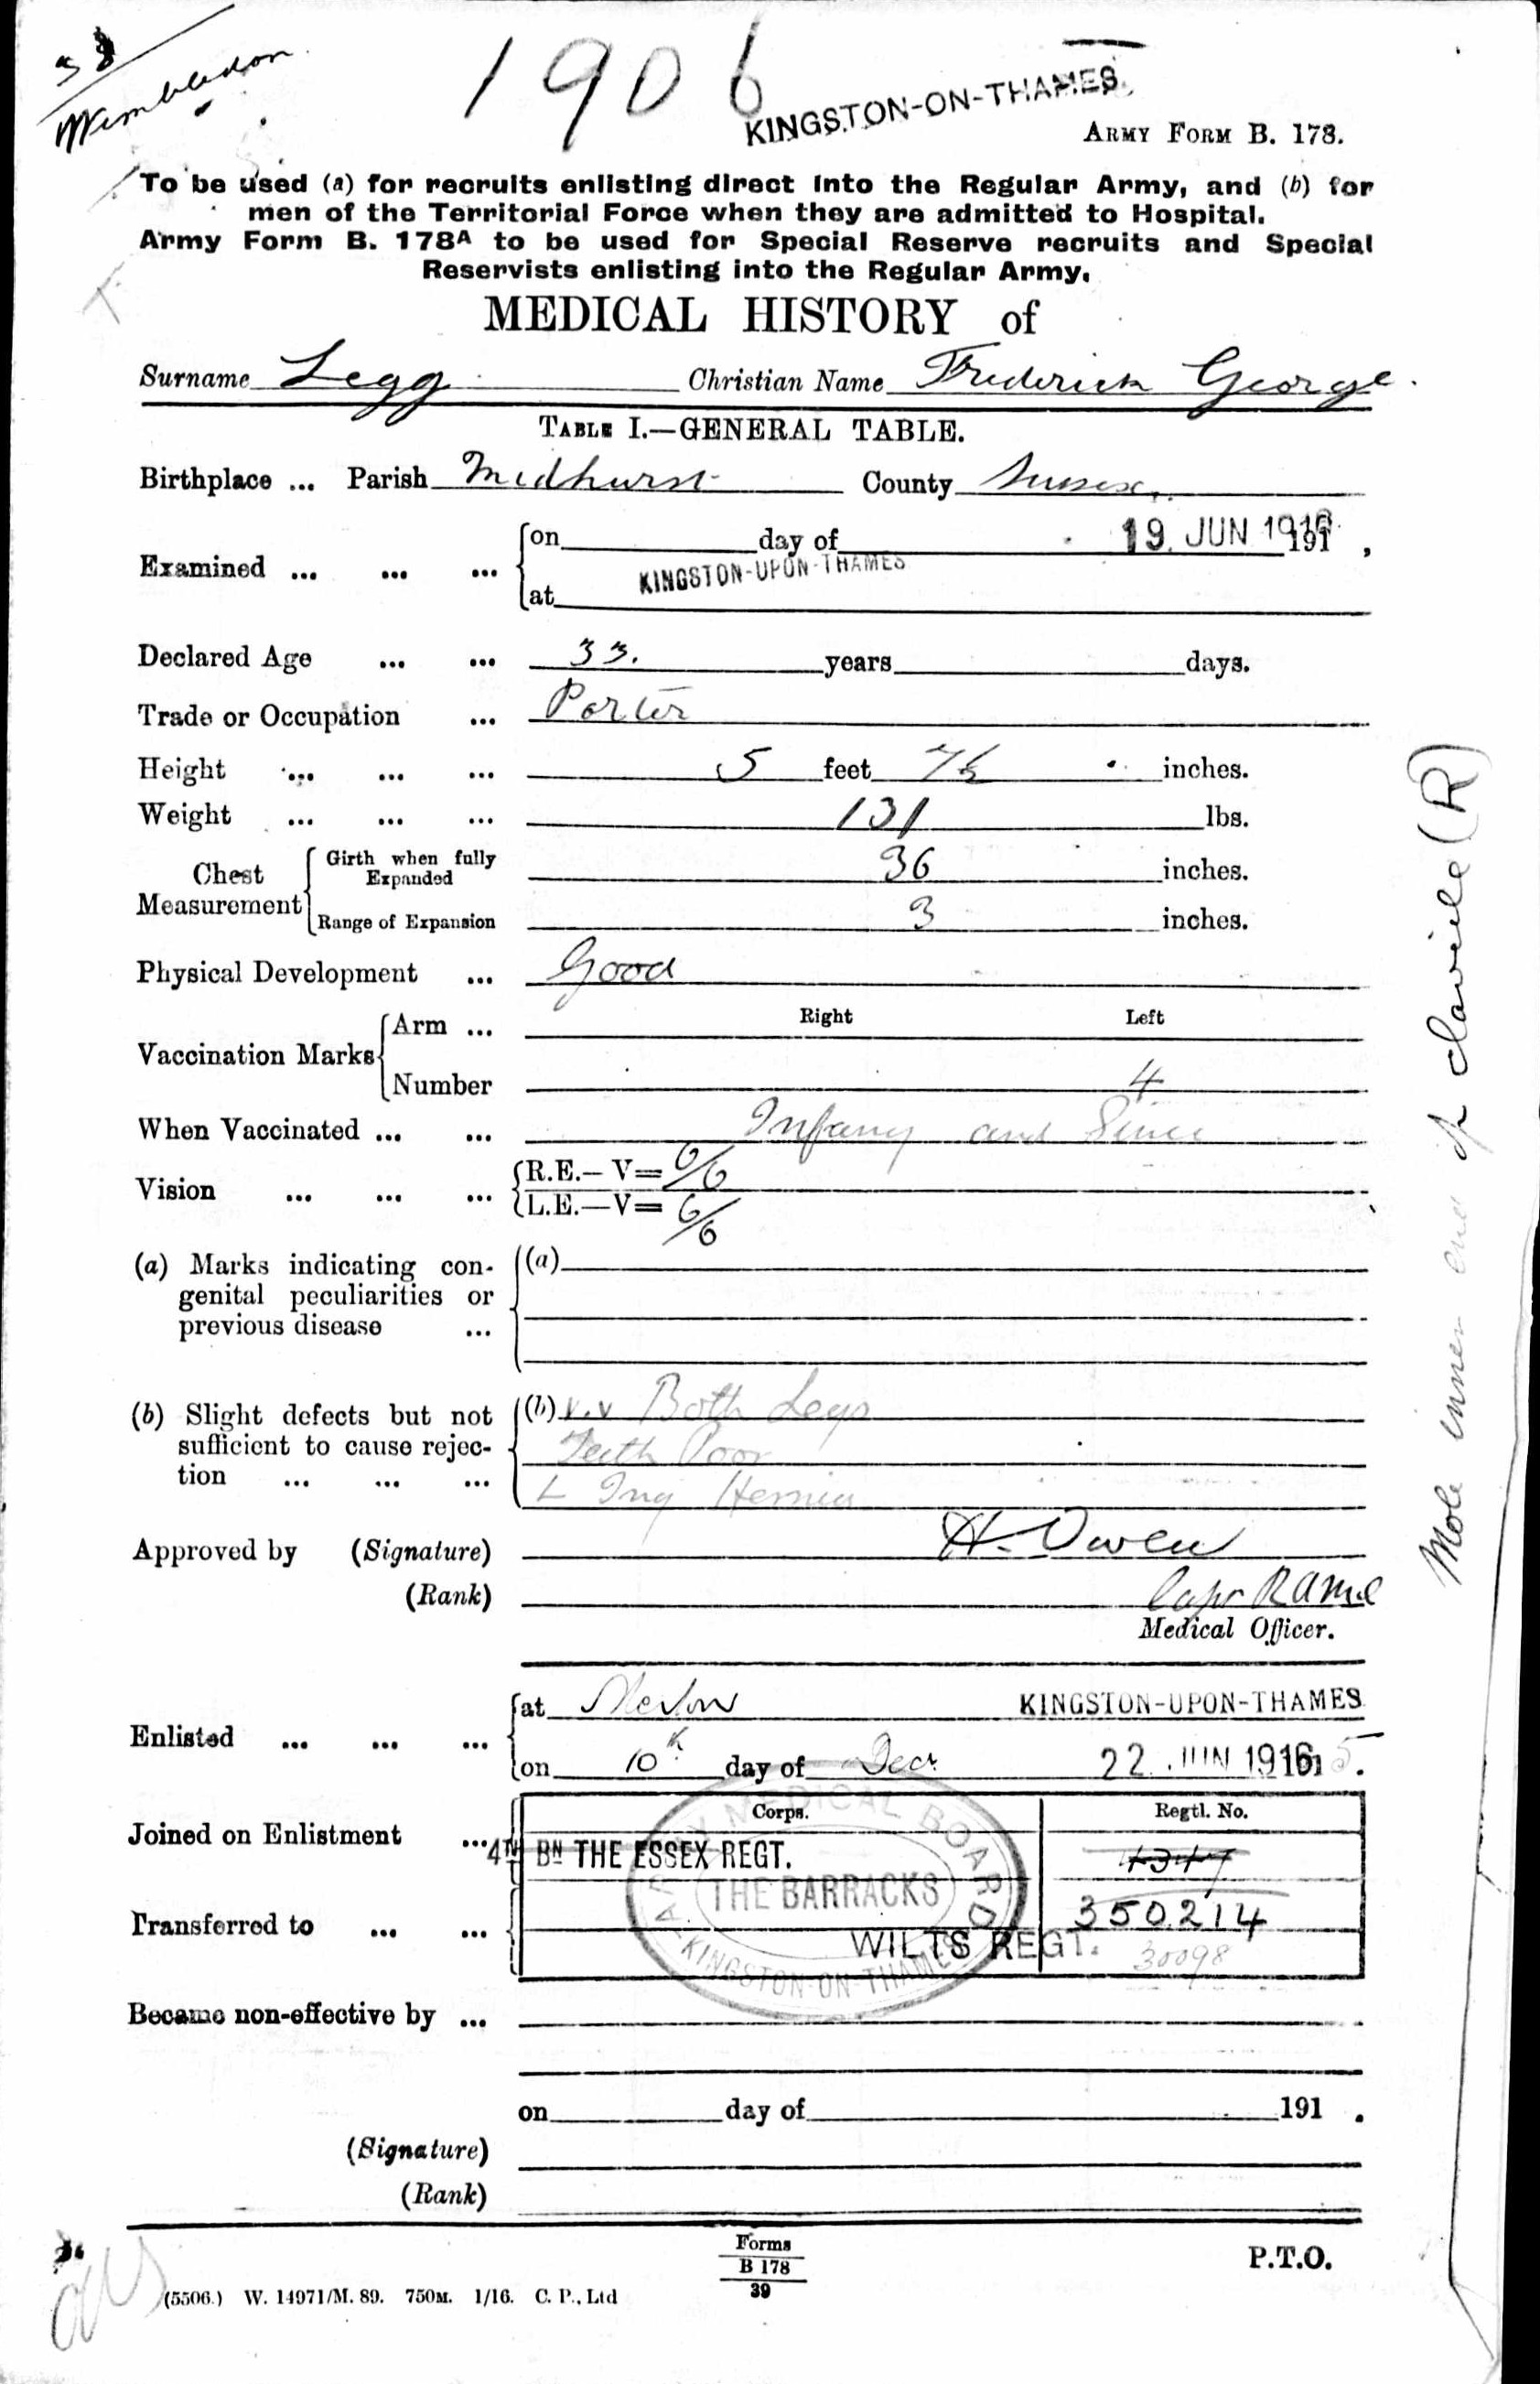 38
Wimbledon
1906
KINGSTON-ON-THAMES.
ARMY FORM B. 178.
To be used (a) for recruits enlisting direct into the Regular Army, and (b) for
men of the Territorial Force when they are admitted to Hospital.
Army Form B. 178A to be used for Special Reserve recruits and Special
Reservists enlisting into the Regular Army.
MEDICAL HISTORY of
Surname Legg Christian Name Frederick George.
TABLE I.—GENERAL TABLE.
Birthplace ... Parish Midhurst County Sussex.
Examined ... ... ... on day of 19 JUN 1916 191 ,
at KINGSTON-UPON-THAMES
Declared Age ... ... 33. years days.
Trade or Occupation ... Porter
Height ... ... ... 5 feet 7½ inches.
Weight ... ... ... 131 lbs.
Chest Measurement Girth when fully Expanded 36 inches.
Range of Expansion 3 inches.
Physical Development ... Good
Right Left
Vaccination Marks Arm ...
Number 4
When Vaccinated ... ... Infancy and Since
Vision ... ... ... R.E.—V= 6/6
L.E.—V= 6/6
(a) Marks indicating con- (a)
genital peculiarities or
previous disease ...
(b) Slight defects but not (b) V.V Both Legs
sufficient to cause rejec- Teeth Poor
tion ... ... ... L Ing Hernia
Approved by (Signature) H. Owen
(Rank) Capt RAMC
Medical Officer.
Mole inner end of clavicle (R)
Enlisted ... ... ... at Merton KINGSTON-UPON-THAMES
on 10th day of Decr 22 JUN 1916 191 5.
Corps. Regtl. No.
Joined on Enlistment ... 4TH BN THE ESSEX REGT.
350214
Transferred to ... ... WILTS REGT. 30098
ARMY MEDICAL BOARD
THE BARRACKS
KINGSTON-ON-THAMES
Became non-effective by ...
on day of 191 .
(Signature)
(Rank)
Forms
B 178
39
P.T.O.
(5506.) W. 14971/M. 89. 750M. 1/16. C. P., Ltd